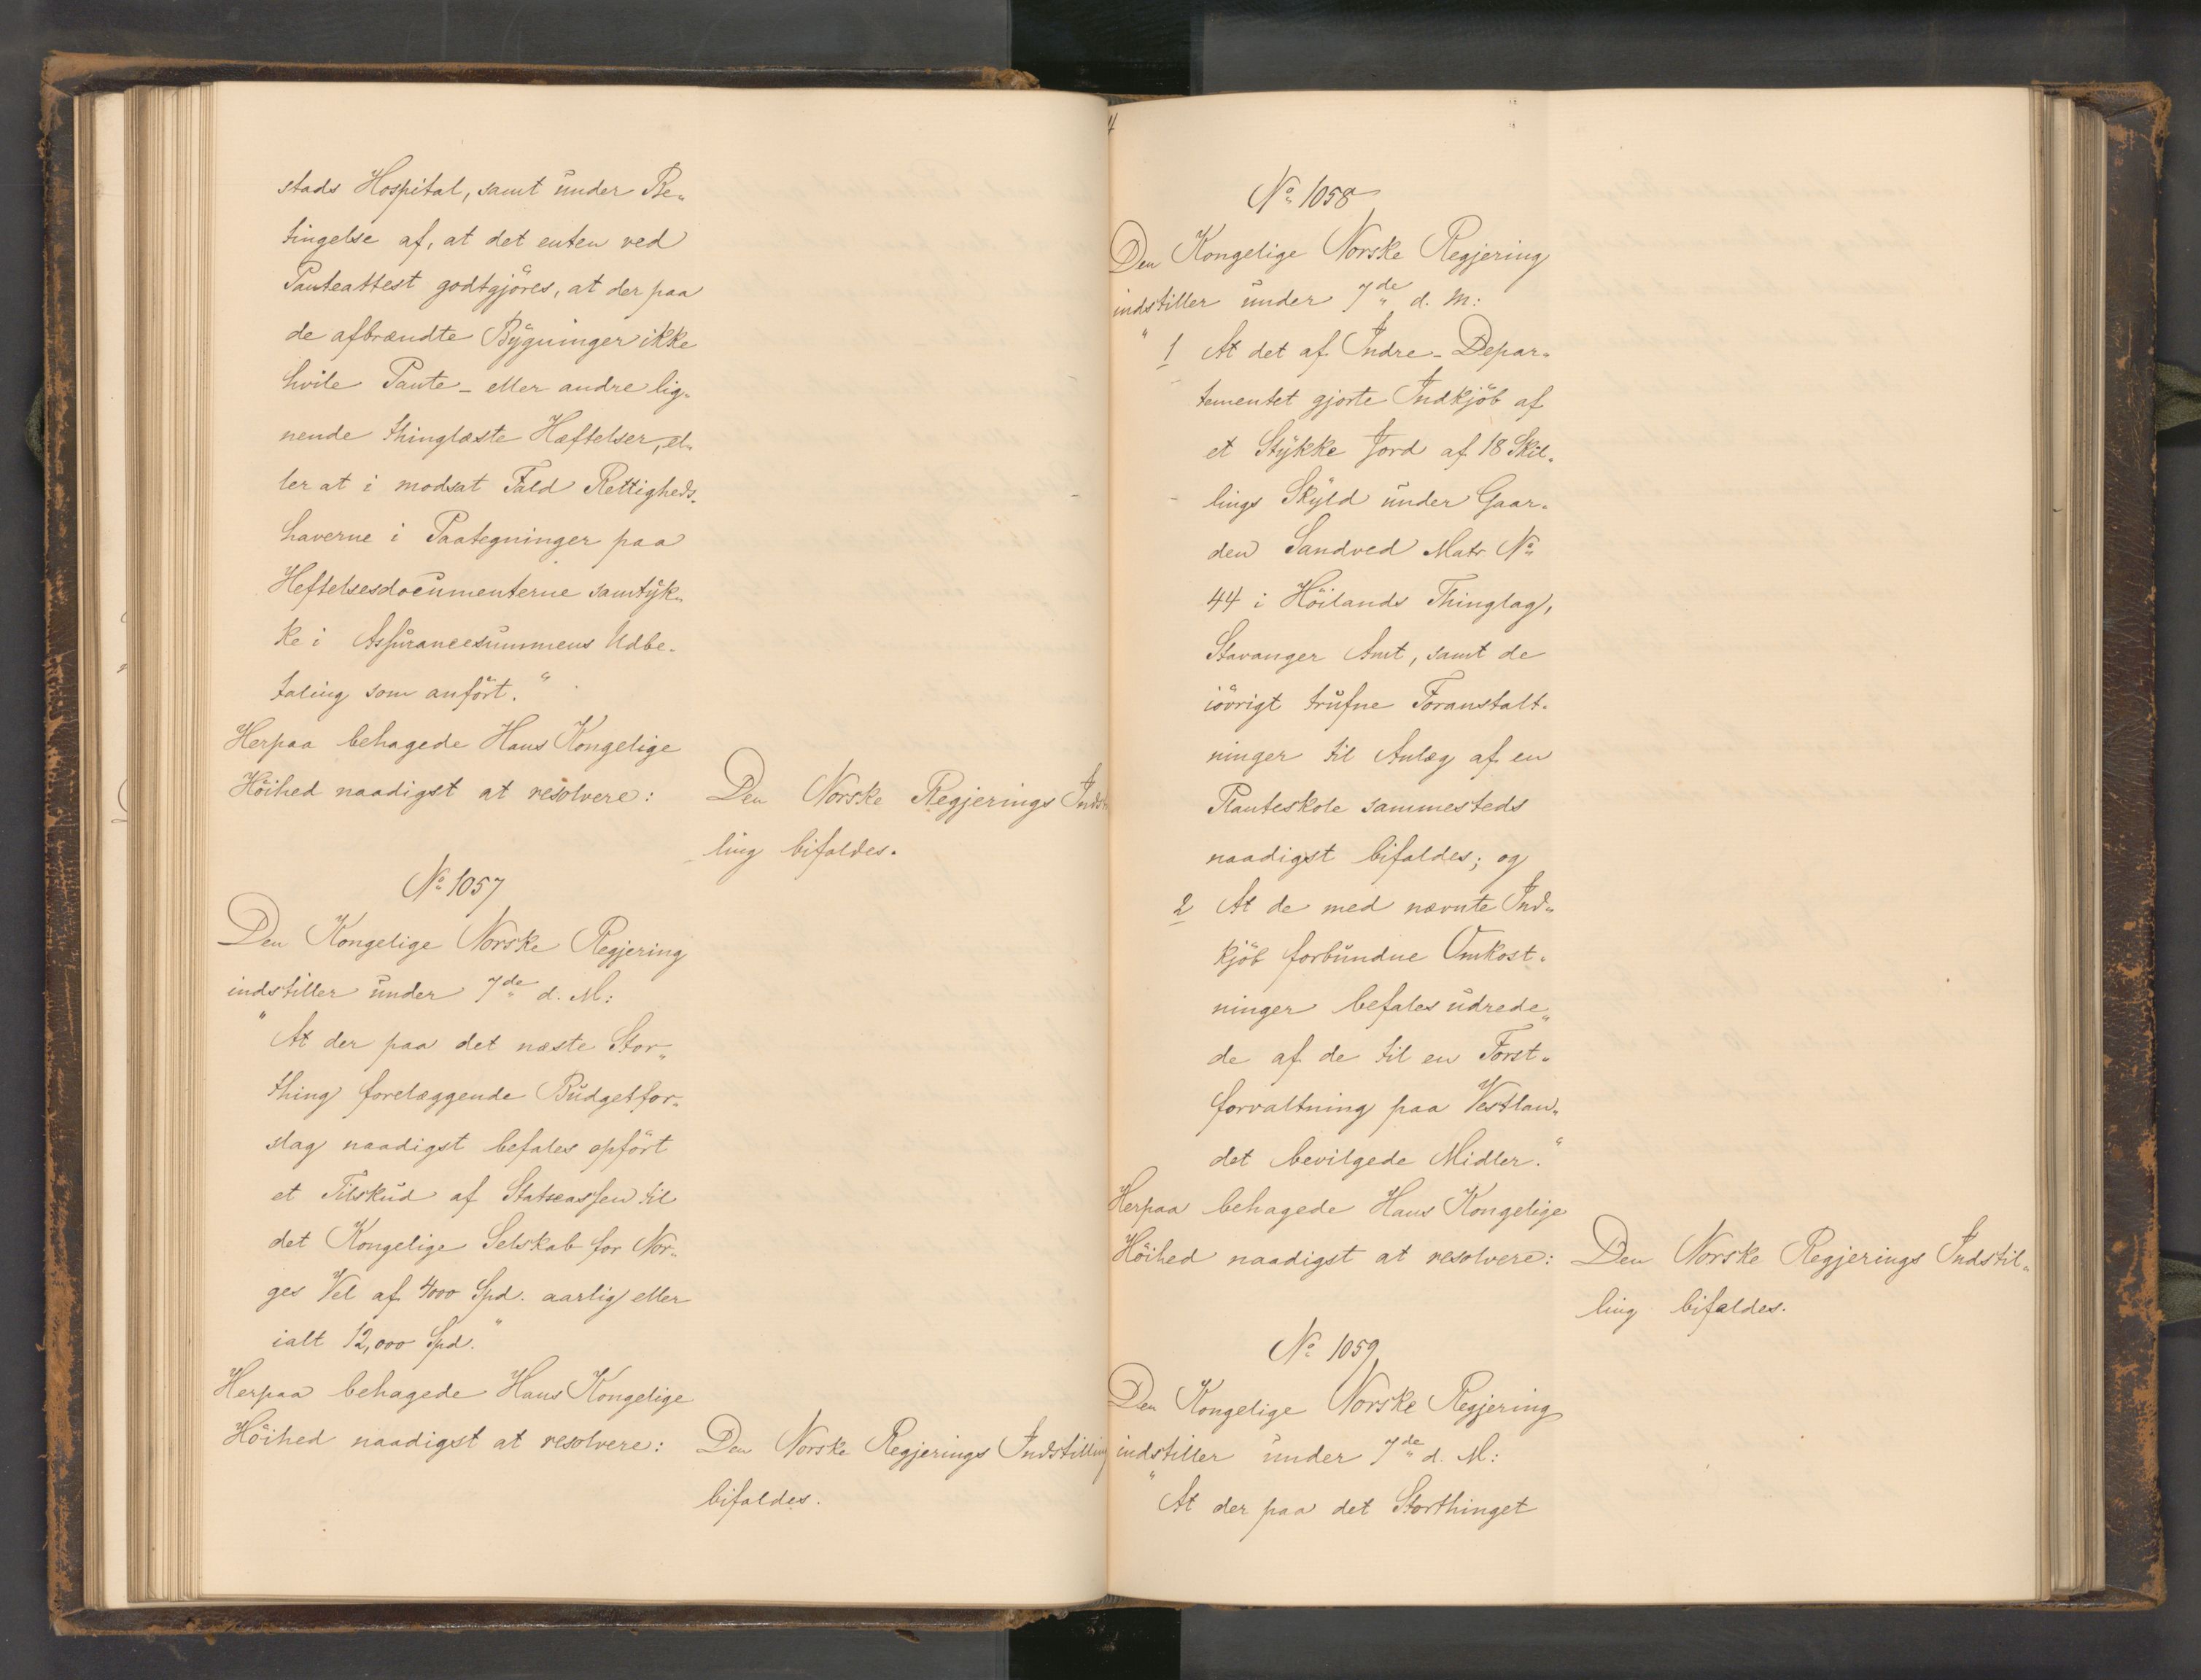 stads Hospital, samt under Be„
tingelse af, at det enten ved
Panteattest godtgjöres, at der paa
de afbrændte Bygninger ikke
hvile Pante- eller andre lig„
nende thinglæste Hæftelser, el„
ler at i modsat Fald Rettigheds„
haverne i Paategninger paa
Heftelsesdocumenterne samtyk„
ke i Assurancesummens Udbe„
taling som anfört."
Herpaa behagede Hans Kongelige
Höihed naadigst at resolvere: Den Norske Regjerings Indstil
ling bifaldes.
No 1057
Den Kongelige Norske Regjering
indstiller under 7de d. M:
"At der paa det næste Stor„
thing forelæggende Budgetfor„
slag naadigst befales opfört
et Tilskud af Statscassen til
det Kongelige Selskab for Nor„
ges Vel af 4000 Spd. aarlig eller
ialt 12,000 Spd."
Herpaa behagede Hans Kongelige
Höihed naadigst at resolvere: Den Norske Regjerings Indstilling
bifaldes.
No 1058
Den Kongelige Norske Regjering
indstiller under 7de d. M:
"1 At det af Indre-Depar„
tementet gjorte Indkjöb af
et Stykke Jord af 18 Skil„
lings Skyld under Gaar„
den Sandved Matr No
44 i Höilands Thinglag,
Stavanger Amt, samt de
iövrigt trufne Foranstalt„
ninger til Anlæg af en
Planteskole sammesteds
naadigst bifaldes; og
2 At de med nævnte Ind„
kjöb forbundne Omkost„
ninger befales udrede„
de af de til en Forst„
forvaltning paa Vestlan„
det bevilgede Midler."
Herpaa behagede Hans Kongelige
Höihed naadigst at resolvere: Den Norske Regjerings Indstil„
ling bifaldes.
No 1059
Den Kongelige Norske Regjering
indstiller under 7de d. M:
"At der paa det Storthinget